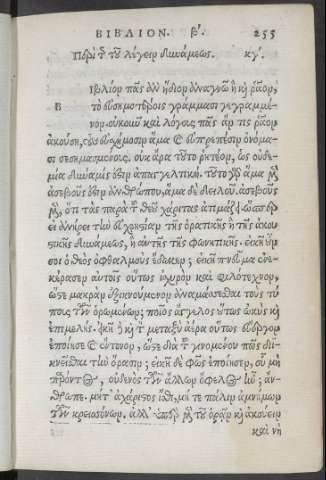 ΒΙΒΛΙΟΝ. β'. 255
Περὶ τῆς τοῦ λέγειν δυνάμεως. κγ'.
Βιβλίον πᾶς ἂν ἥδιον ἀναγνῴη καὶ ῥᾷον,
τὸ εὐσημοτέροις γράμμασι γεγραμμέ-
νον. οὐκοῦν καὶ λόγους πᾶς ἄν τις ῥᾷον
ἀκούσῃ, τοὺς εὐσχήμοσιν ἅμα καὶ εὐπρεπέσιν ὀνόμα-
σι σεσημασμένους. οὐκ ἄρα τοῦτο ῥητέον, ὡς οὐδε-
μία δύναμίς ἐστιν ἀπαγγελτική. τοῦτο γὰρ ἅμα μὲν
ἀσεβοῦς ἐστιν ἀνθρώπου, ἅμα δὲ δειλοῦ. ἀσεβοῦς
μὲν, ὅτι τὰς παρὰ τοῦ θεοῦ χάριτας ἀτιμάζει, ὥσπερ
εἰ ἀνῄρει τὴν εὐχρηστίαν τῆς ὁρατικῆς ἢ τῆς ἀκου-
στικῆς δυνάμεως, ἢ αὐτῆς τῆς φωνητικῆς. εἰκῆ οὖν
σοι ὁ θεὸς ὀφθαλμοὺς ἔδωκεν; εἰκῆ πνεῦμα ἐνε-
κέρασεν αὐτοῖς οὕτως ἰσχυρὸν καὶ φιλότεχνον,
ὥστε μακρὰν ἐξικνούμενον ἀναμάσσεσθαι τοὺς τύ-
πους τῶν ὁρωμένων; ποῖος ἄγγελος οὕτως ὠκὺς καὶ
ἐπιμελής. εἰκῆ δὲ καὶ τὸν μεταξὺ ἀέρα οὕτως ἐνεργὸν
ἐποίησε καὶ εὔτονον, ὥστε διὰ τοῦ γινομένου πῶς διι-
κνεῖσθαι τὴν ὅρασιν; εἰκῆ δὲ φῶς ἐποίησεν, οὗ μὴ
παρόντος, οὐδενὸς τῶν ἄλλων ὄφελος ἦν; ἄν-
θρωπε. μήτ' ἀχάριστος ἴσθι, μήτε πάλιν ἀμνήμων
τῶν κρεισσόνων, ἀλλ' ὑπὲρ μὲν τοῦ ὁρᾶν καὶ ἀκούειν
καὶ νὴ